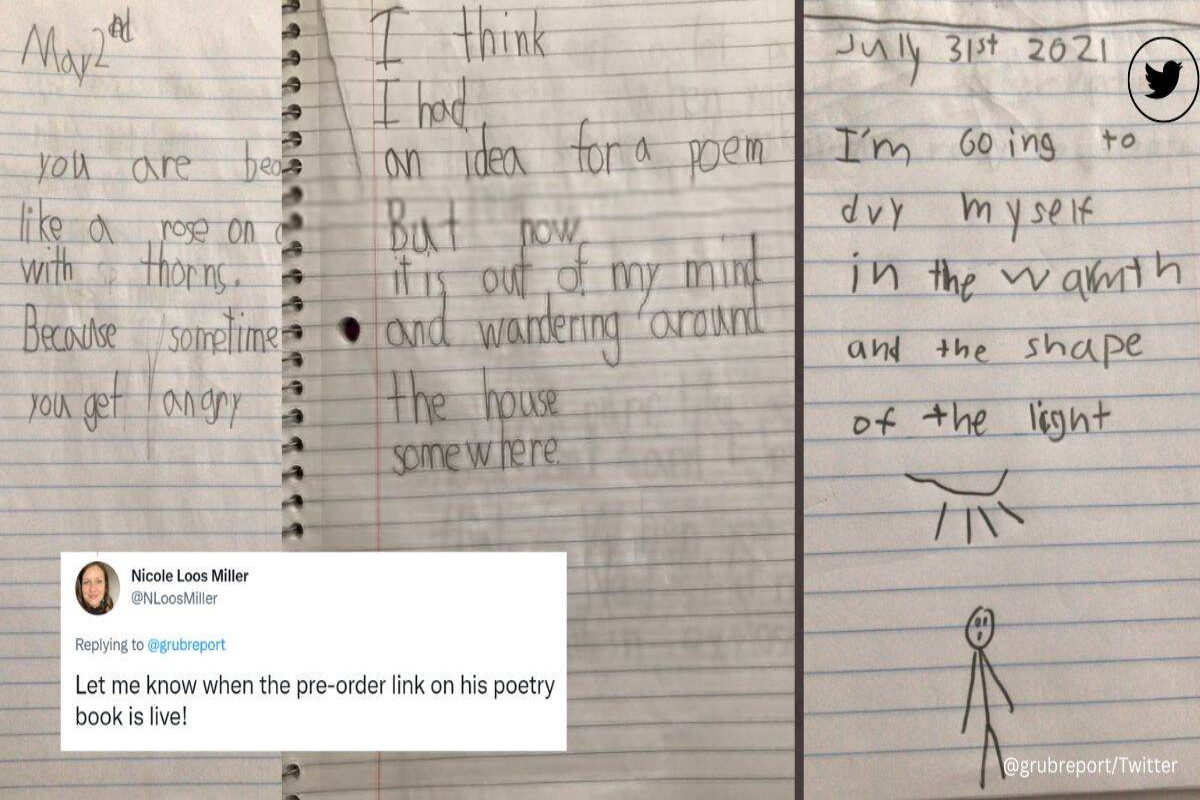 May 2nd
you are bea
like a rose on
with thorns.
Because sometime
you get angry
I think
I had
an idea for a poem
But now
it is out of my mind
and wandering around
the house
somewhere.
Jully 31st 2021
I'm Going to
dvy myself
in the warmth
and the shape
of the light
Nicole Loos Miller
@NLoosMiller
Replying to @grubreport
Let me know when the pre-order link on his poetry
book is live!
@grubreport/Twitter